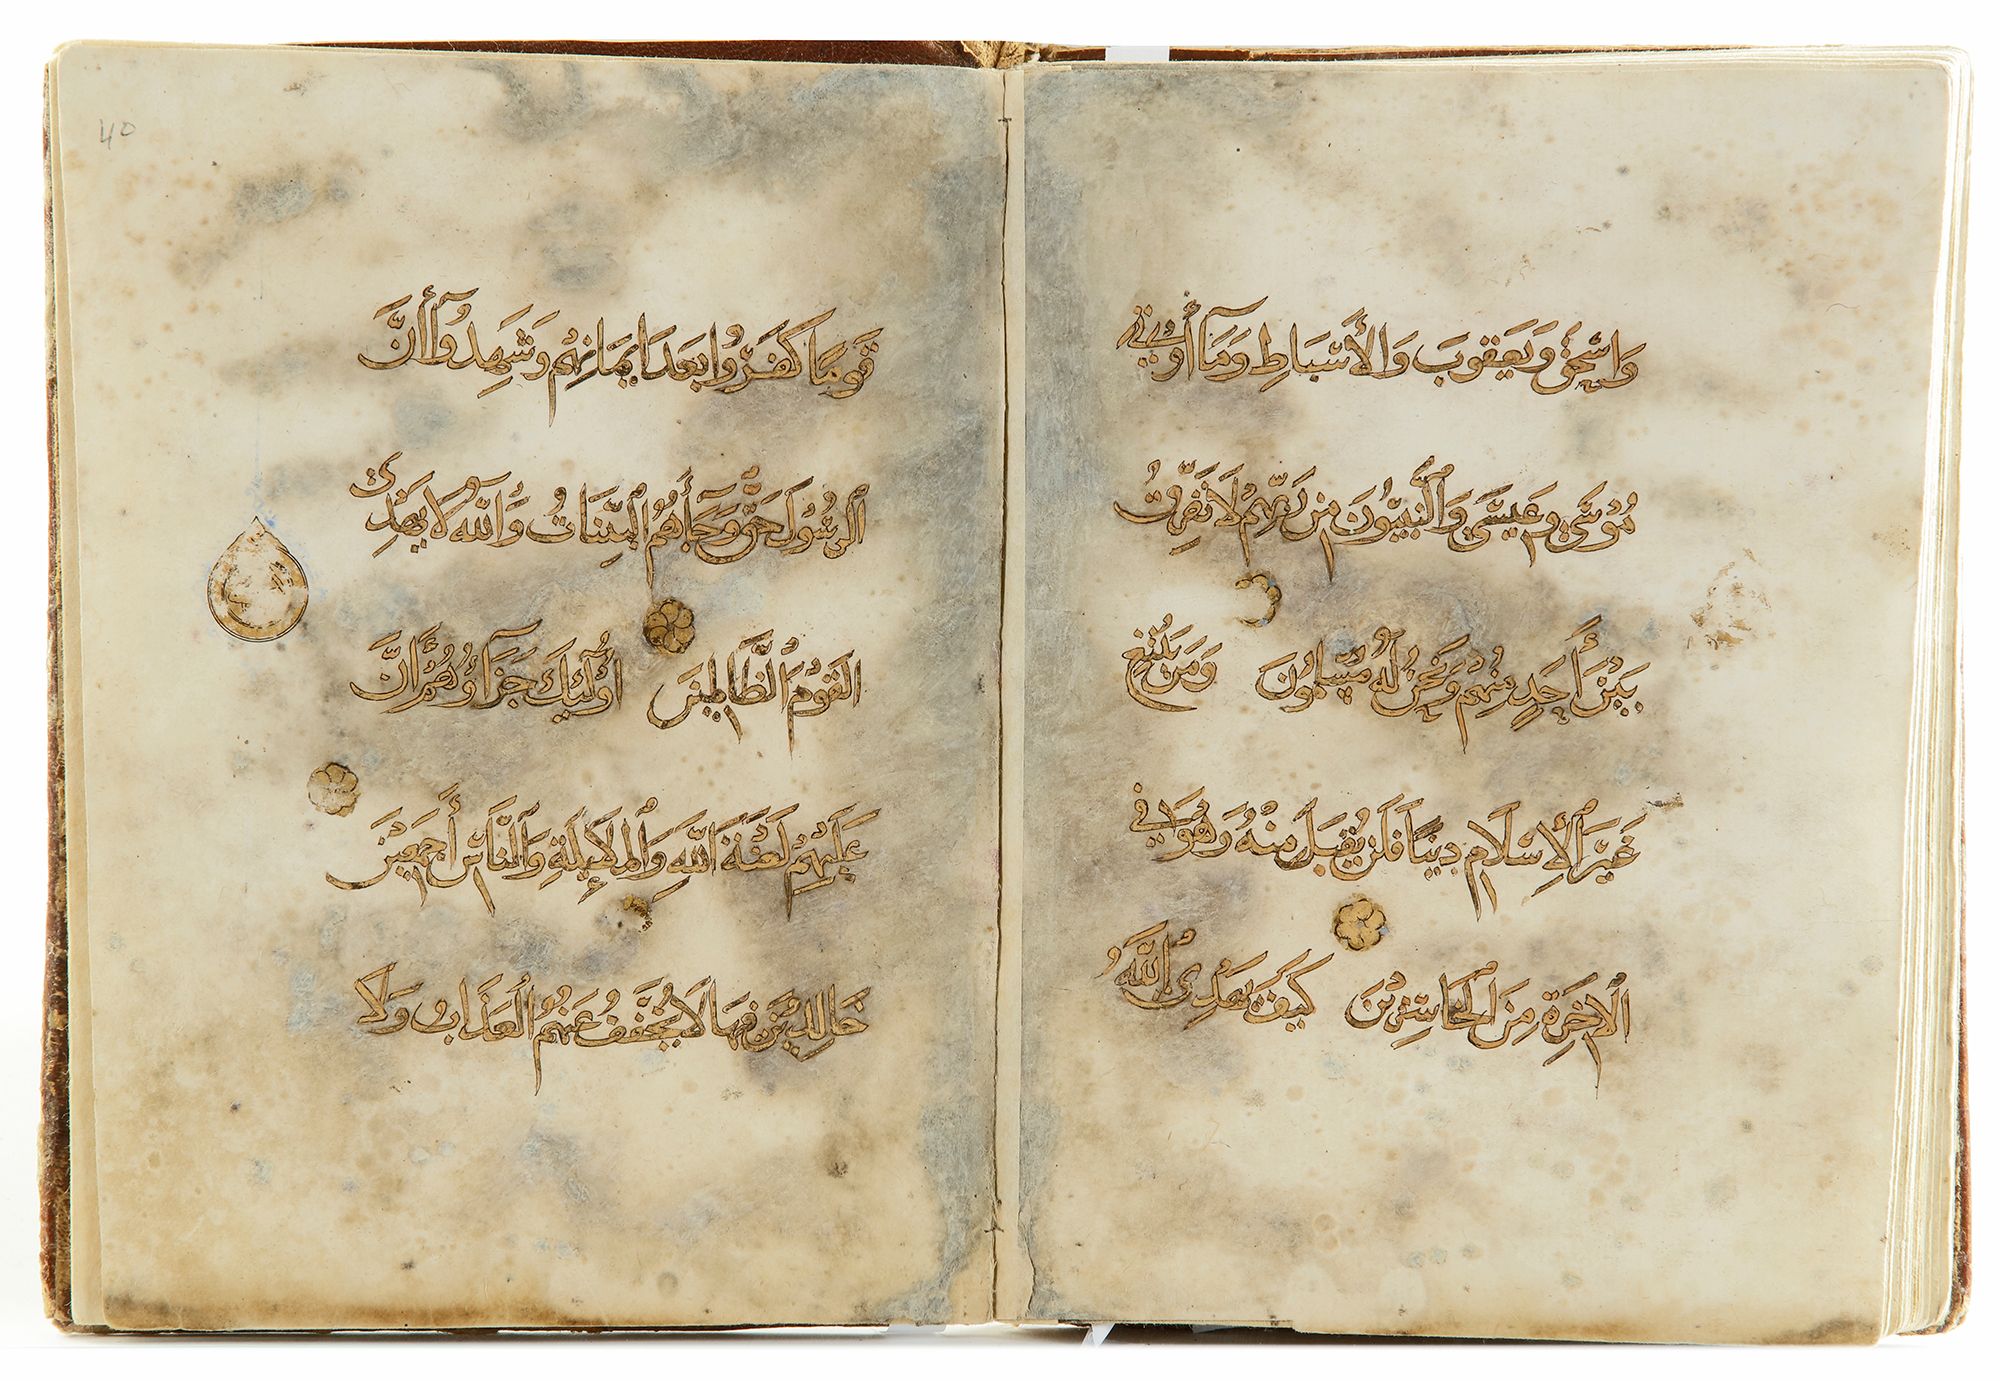 وَإِسْحَٰقَ وَيَعْقُوبَ وَالْأَسْبَاطِ وَمَآ أُوتِيَ
مُوسَىٰ وَعِيسَىٰ وَالنَّبِيُّونَ مِن رَّبِّهِمْ لَا نُفَرِّقُ
بَيْنَ أَحَدٍ مِّنْهُمْ وَنَحْنُ لَهُ مُسْلِمُونَ وَمَن يَبْتَغِ
غَيْرَ الْإِسْلَامِ دِينًا فَلَن يُقْبَلَ مِنْهُ وَهُوَ فِي
الْآخِرَةِ مِنَ الْخَاسِرِينَ كَيْفَ يَهْدِي اللَّهُ
40
قَوْمًا كَفَرُوا بَعْدَ إِيمَانِهِمْ وَشَهِدُوٓا أَنَّ
الرَّسُولَ حَقٌّ وَجَآءَهُمُ الْبَيِّنَاتُ وَاللَّهُ لَا يَهْدِي
الْقَوْمَ الظَّالِمِينَ أُولَٰٓئِكَ جَزَآؤُهُمْ أَنَّ
عَلَيْهِمْ لَعْنَةَ اللَّهِ وَالْمَلَٰٓئِكَةِ وَالنَّاسِ أَجْمَعِينَ
خَالِدِينَ فِيهَا لَا يُخَفَّفُ عَنْهُمُ الْعَذَابُ وَلَا